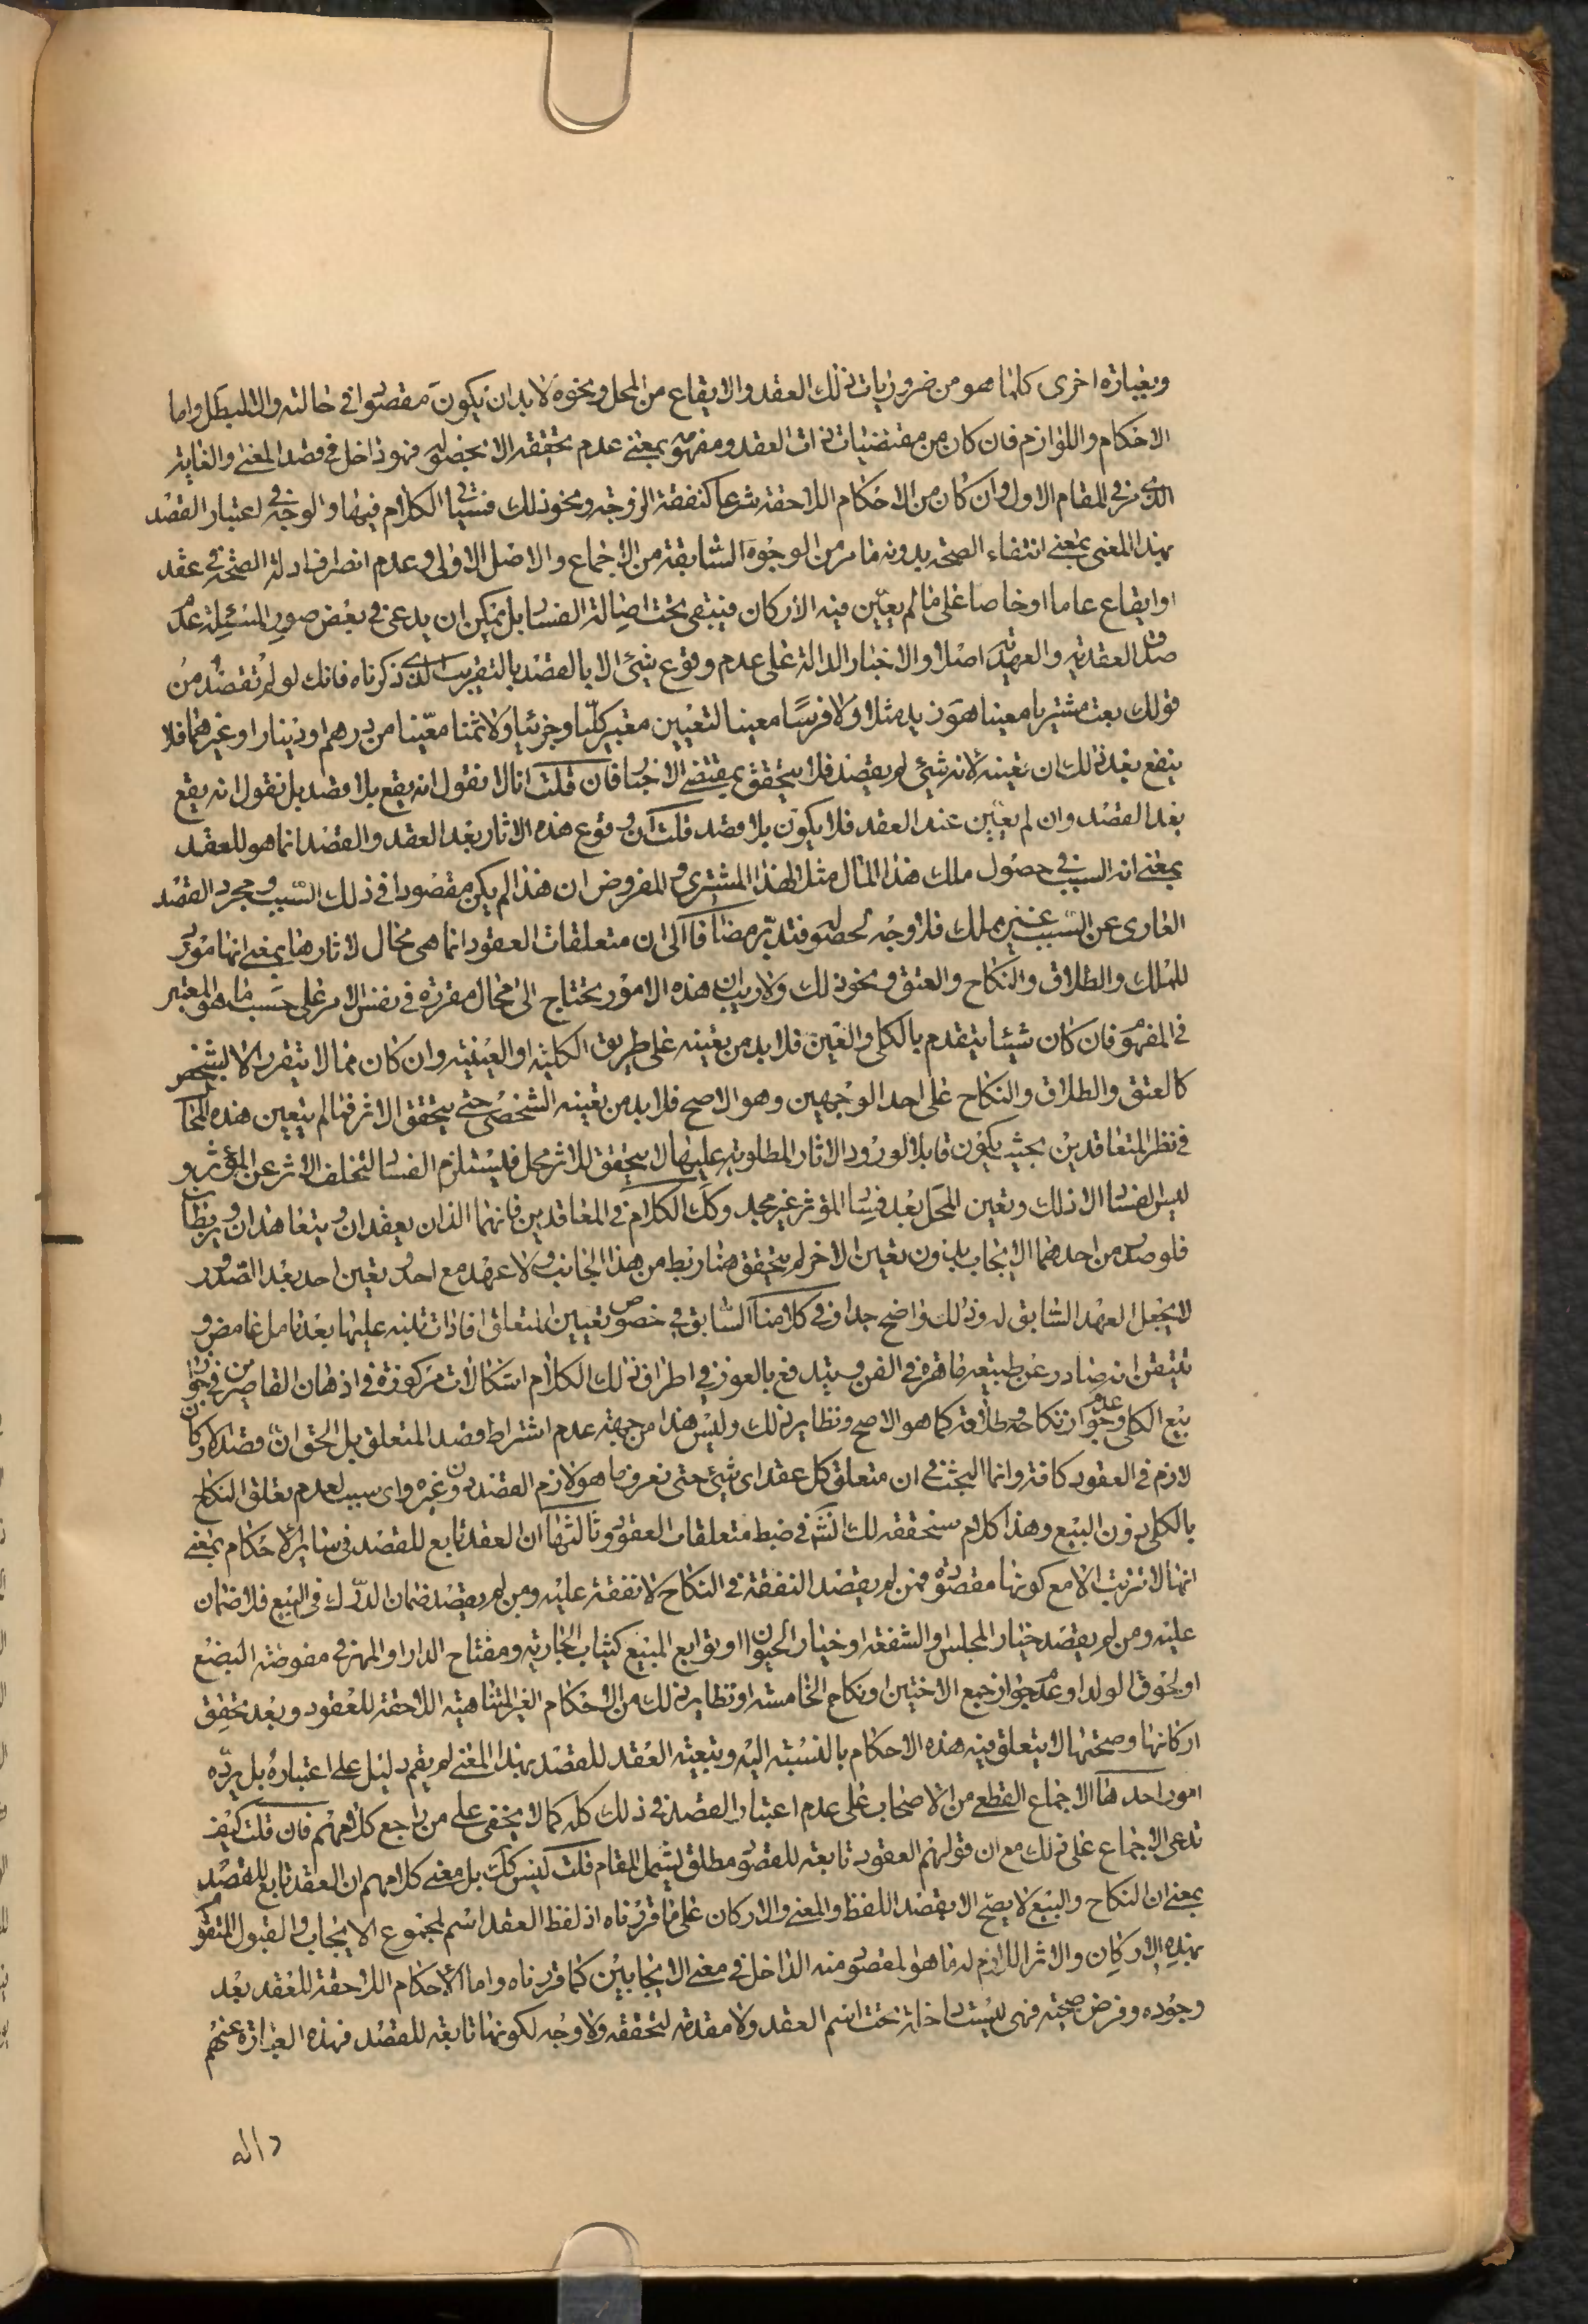 وبعبارة اخرى كلما هو من ضروريات ذلك العقد والايقاع من المحل ونحوه لا بد ان يكون مقصودا في حالته والا لبطل واما
الاحكام واللوازم فان كان من مقتضيات ذات العقد ومفهومه بمعنى عدم تحققه الا بحصوله فهو داخل في قصد المعنى والغاية
الذي مر في المقام الاول وان كان من الاحكام اللاحقة شرعا كنفقة الزوجة ونحو ذلك فسيأتي الكلام فيها والوجه في اعتبار القصد
بهذا المعنى بمعنى انتفاء الصحة بدونه ما مر من الوجوه السابقة من الاجماع والاصل الاولى وعدم انصراف ادلة الصحة في عقد
او ايقاع عاما او خاصا على ما لم يعين فيه الاركان فيبقى تحت اصالة الفساد بل يمكن ان يدعى في بعض صور المسئلة عدم
صدق العقدية والعهدية اصلا والاخبار الدالة على عدم وقوع شيئ الا بالقصد بالتقريب الذى ذكرناه فانك لو لم تقصد من
قولك بعت مشتريا معينا هو زيد مثلا ولا فرسا معينا لتعيين معتبر كليا وجزئيا ولا ثمنا معينا من درهم او دينار او غيرهما فلا
ينفع بعد ذلك ان تعينه لانه شيئ لم يقصد فلا يتحقق بمقتضى الاخبار فان قلت انا لا نقول انه يقع بلا قصد بل نقول انه يقع
بعد القصد وان لم يعين عند العقد فلا يكون بلا قصد قلت ان وقوع هذه الاثار بعد العقد والقصد انما هو للعقد
بمعنى انه السبب في حصول ملك هذا المال مثلا لهذا المشترى والمفروض ان هذا لم يكن مقصودا في ذلك السبب ومجرد القصد
العارى عن السبب غير مملك فلا وجه لحصوله فتدبر مضافا الى ان متعلقات العقود انما هى محال لاثارها بمعنى انها مؤثرة
للملك والطلاق والنكاح والعتق ونحو ذلك ولا ريب ان هذه الامور يحتاج الى محال مقررة في نفس الامر على حسب ما هو المعتبر
في المفهوم فان كان شيئا يتقدم بالكلى والعين فلا بد من تعينه على طريق الكلية او العينية وان كان مما لا يتقرر الا بشخص
كالعتق والطلاق والنكاح على احد الوجهين وهو الاصح فلا بد من تعينه الشخصى حتى يتحقق الاثر فما لم يتعين هذه المحال
في نظر المتعاقدين بحيث يكون قابلا لورود الاثار المطلوبة عليها لا يتحقق للاثر محل فيستلزم الفساد لتخلف الاثر عن المؤثر و
ليس الفساد الا ذلك وتعين المحل بعد فساد المؤثر غير مجد وكك الكلام في المعاقدين فانهما اللذان يعقدان ويتعاهدان ويربطان
فلو صدر من احدهما الايجاب بدون تعين الاخر لم يتحقق هنا ربط من هذا الجانب ولا عهد مع احد وتعين احد بعد الصدور
لا يجعل العهد السابق له وذلك واضح جدا وفي كلامنا السابق في خصوص تعيين المتعلق افادات تنبه عليها بعد تامل غامض و
تتيقن انه صادر عن طبيعة ماهرة في الفن ويندفع بالغور في اطراف ذلك الكلام اشكالات مركوزة في اذهان القاصرين في جواز
بيع الكلى وعدم جواز نكاحه وطلاقه كما هو الاصح ونظاير ذلك وليس هذا من جهة عدم اشتراط قصد المتعلق بل الحق ان قصد الاركان
لازم في العقود كافة وانما البحث في ان متعلق كل عقد اى شيئ حتى نعرف ما هو لازم القصد دون غيره واى سبب لعدم تعلق النكاح
بالكلى دون البيع وهذا كلام سنحققه لك انش في ضبط متعلقات العقود وثالثها ان العقد تابع للقصد في سائر الاحكام بمعنى
انها لا تترتب الا مع كونها مقصودة فمن لم يقصد النفقة في النكاح لا نفقة عليه ومن لم يقصد ضمان الدرك في البيع فلا ضمان
عليه ومن لم يقصد خيار المجلس والشفعة او خيار الحيوان او توابع المبيع كثياب الجارية ومفتاح الدار او المهر في مفوضة البضع
او لحوق الولد او عدم جواز جمع الاختين او نكاح الخامسة او نظاير ذلك من الاحكام الغير المتناهية اللاحقة للعقود وبعد تحقق
اركانها وصحتها لا يتعلق فيه هذه الاحكام بالنسبة اليه وتبعية العقد للقصد بهذا المعنى لم يقم دليل على اعتباره بل يرده
امور احدها الاجماع القطعى من الاصحاب على عدم اعتبار القصد في ذلك كله كما لا يخفى على من راجع كلامهم فان قلت كيف
تدعى الاجماع على ذلك مع ان قولهم العقود تابعة للقصود مطلق يشمل المقام قلت ليس كك بل معنى كلامهم ان العقد تابع للقصد
بمعنى ان النكاح والبيع لا يصح الا بقصد اللفظ والمعنى والاركان على ما قررناه اذ لفظ العقد اسم لمجموع الايجاب والقبول المتقوم
بهذه الاركان والاثر اللازم له ما هو المقصود منه الداخل في معنى الايجابين كما قررناه واما الاحكام اللاحقة للعقد بعد
وجوده وفرض صحته فهى ليست داخلة تحت اسم العقد ولا مقدمة لتحققه ولا وجه لكونها تابعة للقصد فهذه العبارة عنهم
دالة